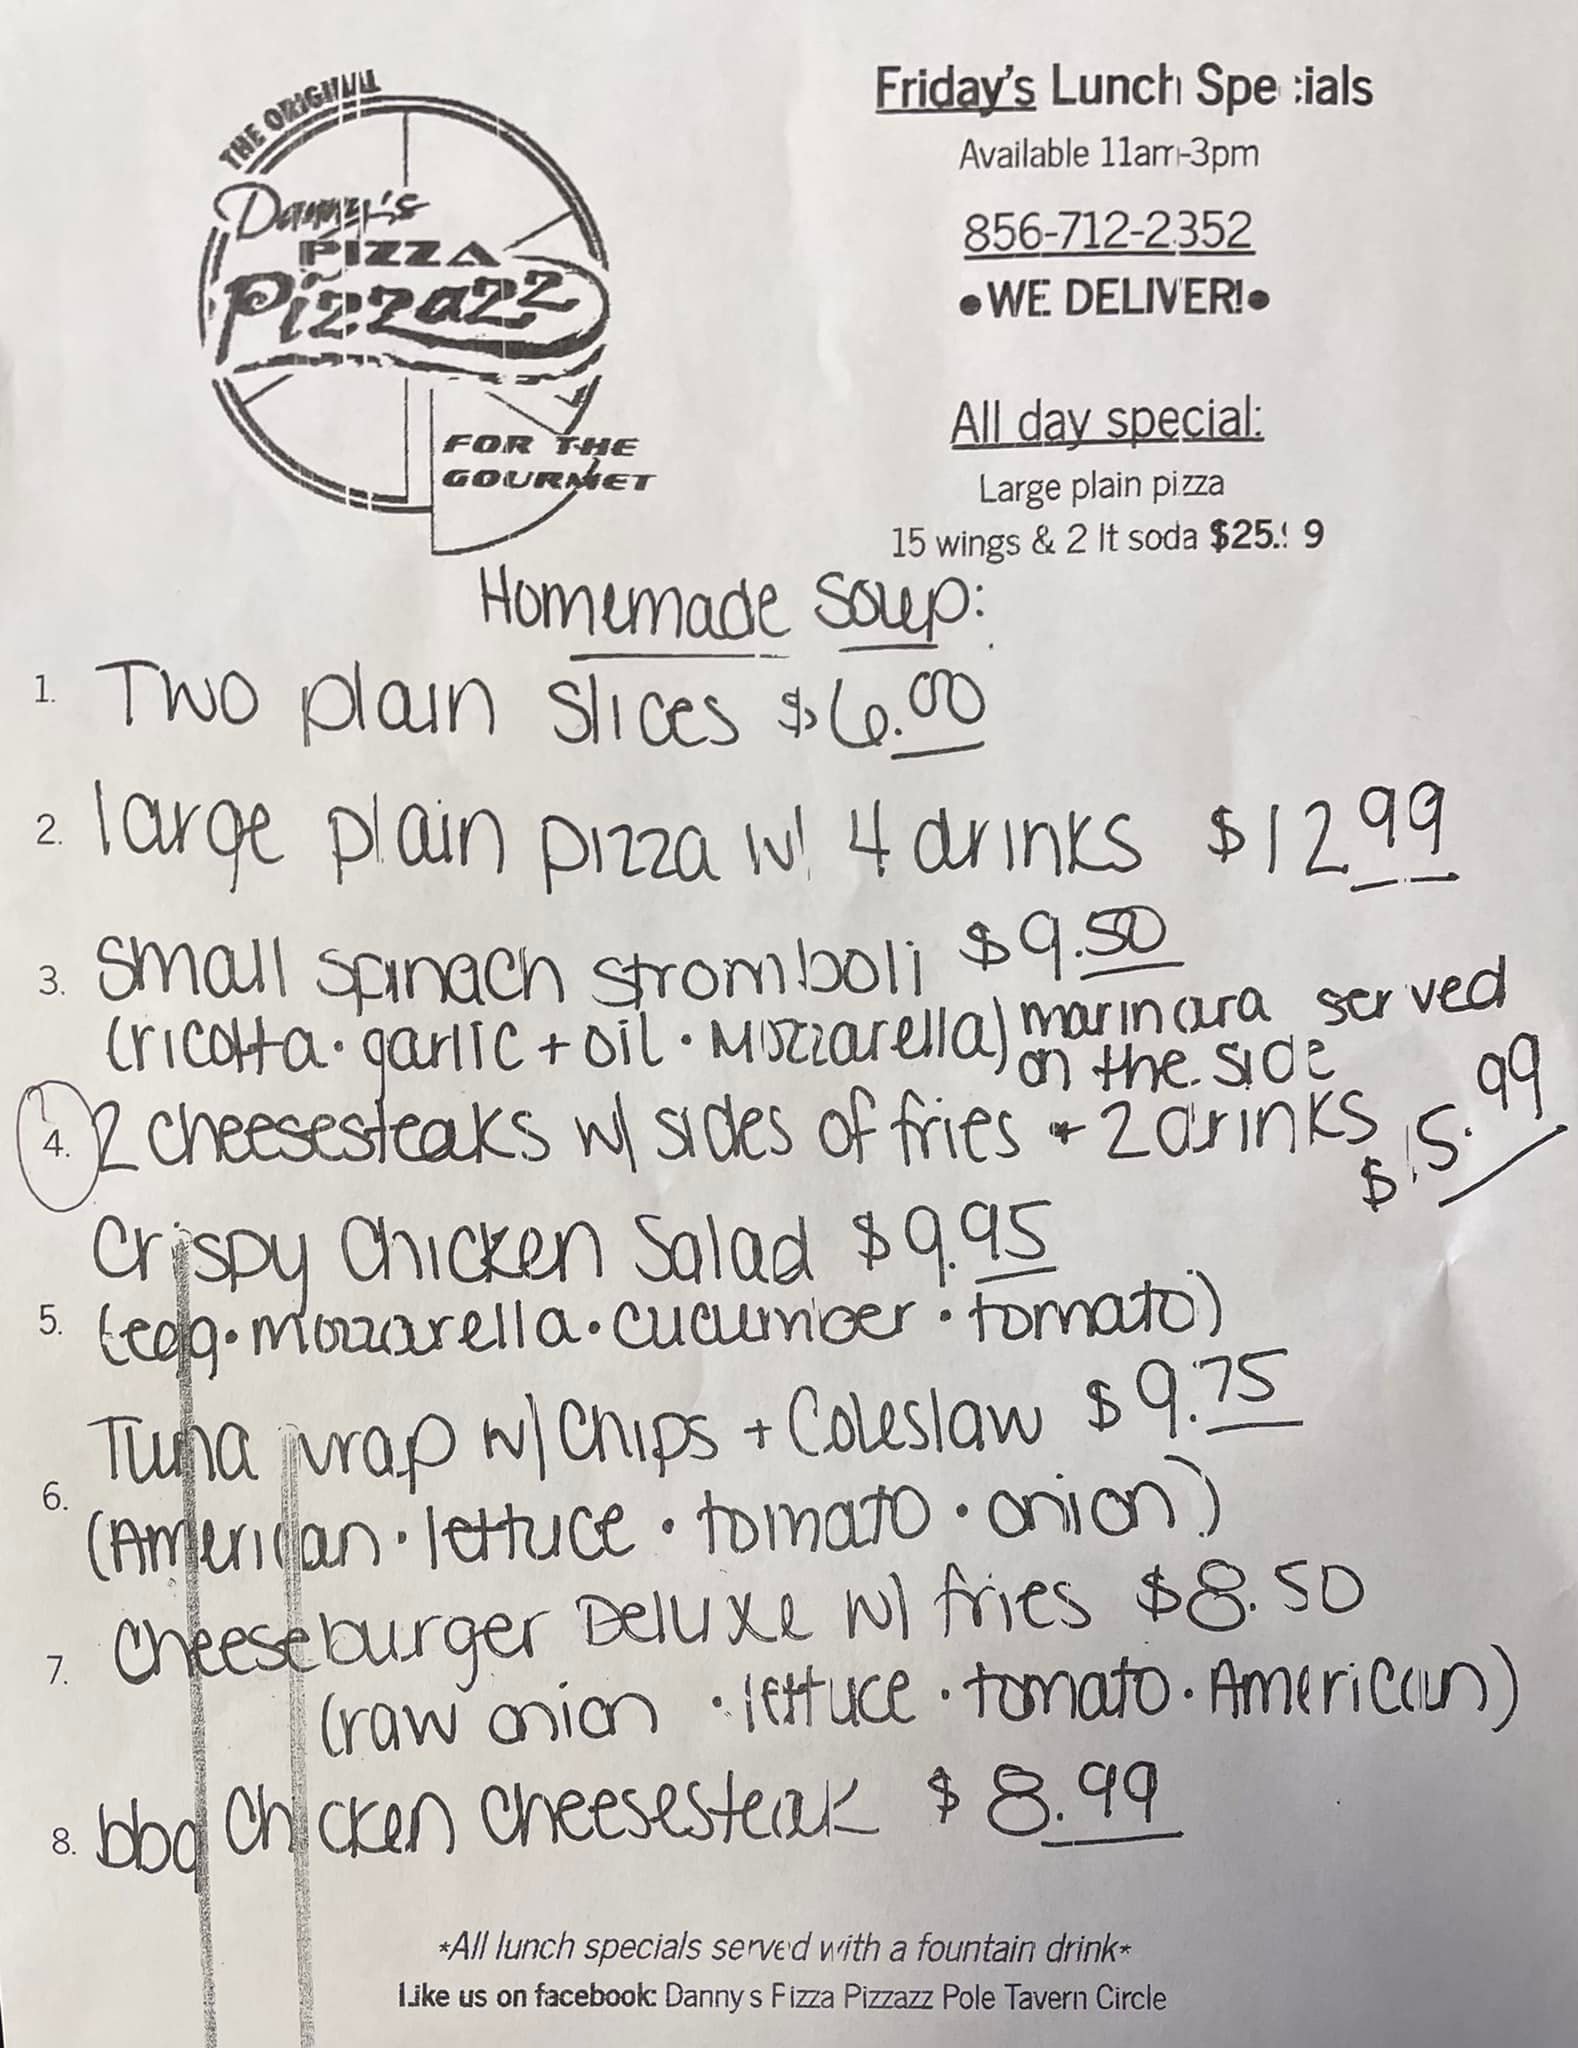 THE ORIGINAL
Danny's
PIZZA
Pizzazz
FOR THE
GOURMET
Friday's Lunch Specials
Available 11am-3pm
856-712-2352
•WE DELIVER!•
All day special:
Large plain pizza
15 wings & 2 lt soda $25.99
Homemade Soup:
1. Two plain slices $6.00
2. large plain pizza w/ 4 drinks $12.99
3. small spinach stromboli $9.50
(ricotta • garlic + oil • Mozzarella) marinara served
on the side
4. 2 cheesesteaks w/ sides of fries + 2 drinks $15.99
Crispy Chicken Salad $9.95
5. (egg • mozzarella • cucumber • tomato)
Tuna wrap w/ Chips + Coleslaw $9.75
6. (American • lettuce • tomato • onion)
Cheeseburger Deluxe w/ fries $8.50
7. (raw onion • lettuce • tomato • American)
8. bbq Chicken Cheesesteak $8.99
*All lunch specials served with a fountain drink*
Like us on facebook: Danny's Pizza Pizzazz Pole Tavern Circle